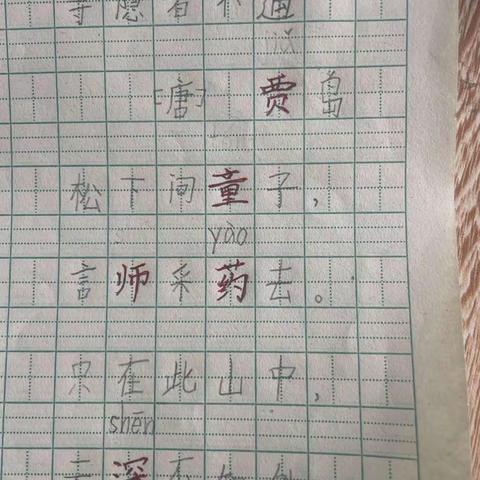 寻隐者不遇
[唐] 贾岛
松下问童子,
yào
言师采药去。
只在此山中,
shēn
云深不知处